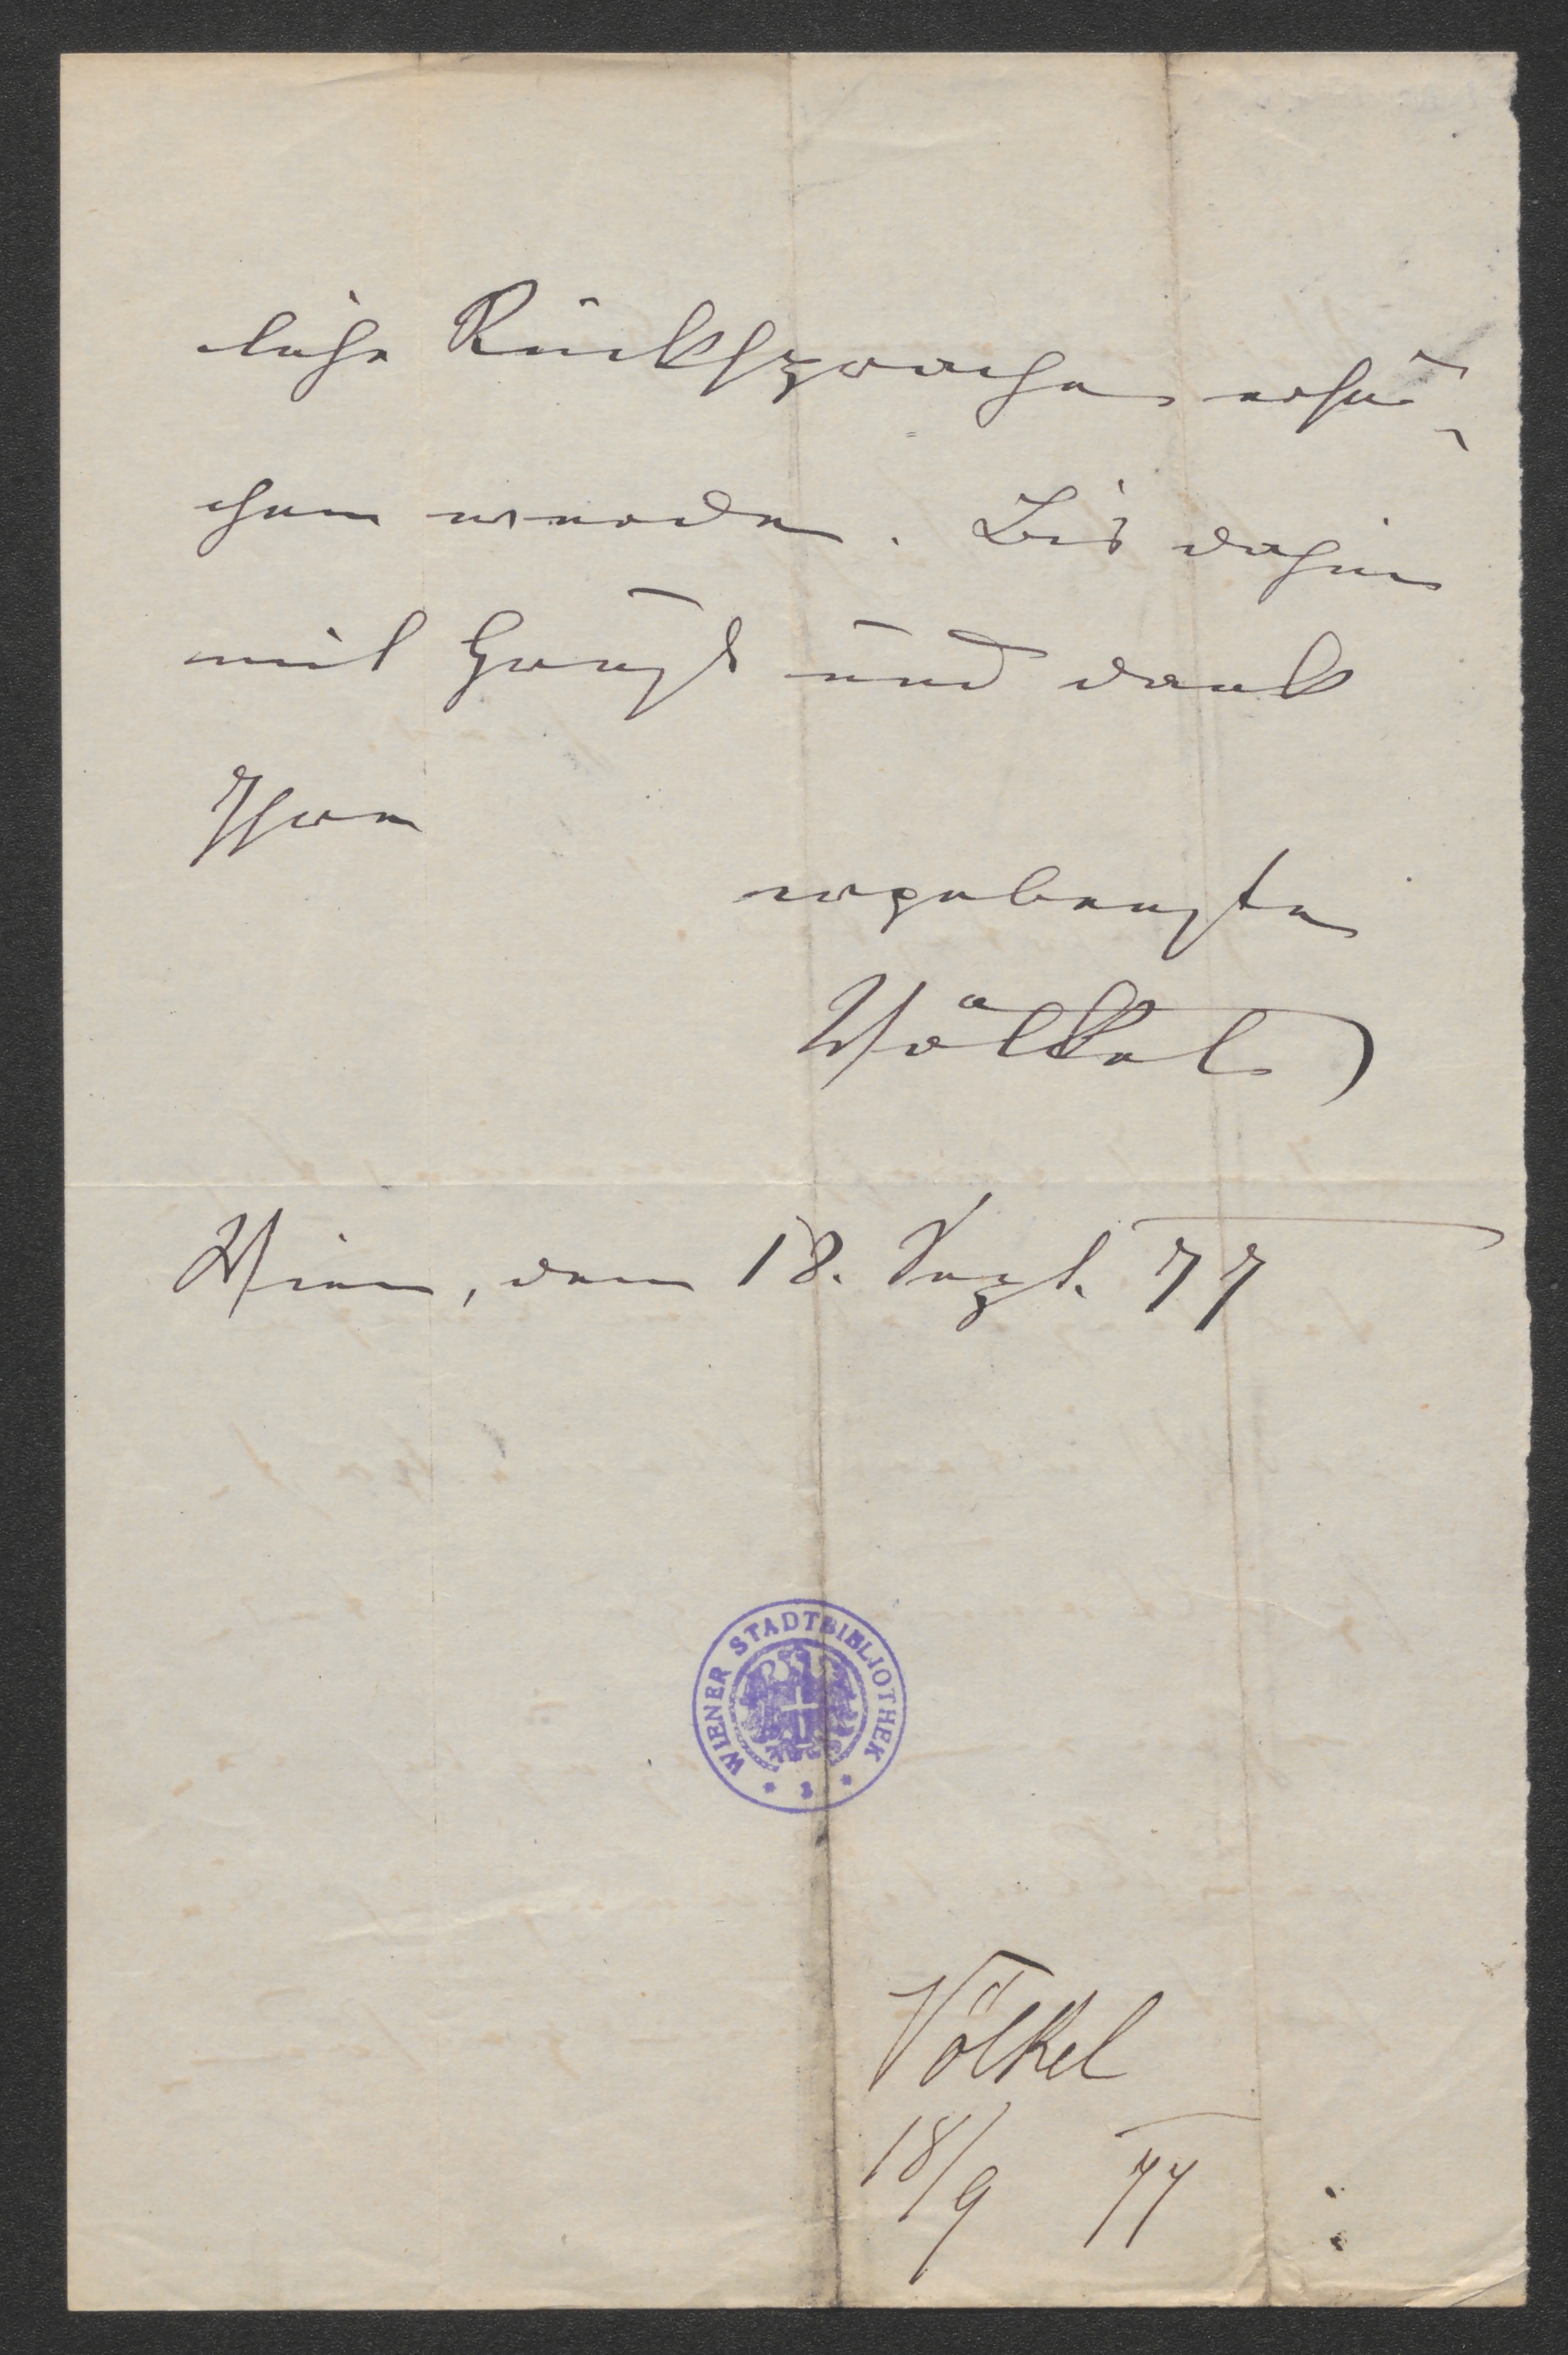 liche Rücksprache ersu¬
chen werde. Bis dahin
mit Gruß und Dank
Ihr
ergebenster
Völkel
Wien, den 18. Sept. 77
WIENER STADTBIBLIOTHEK
Völkel
18/9 77